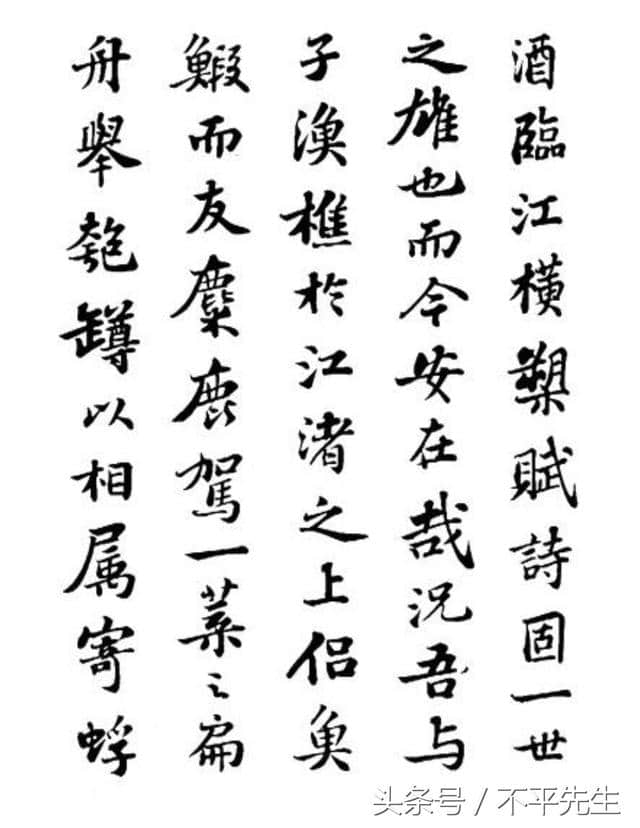 酒臨江橫槊賦詩固一世
之雄也而今安在哉況吾与
子漁樵於江渚之上侣魚
鰕而友麋鹿駕一葉之扁
舟舉匏罇以相属寄蜉
头条号 / 不平先生